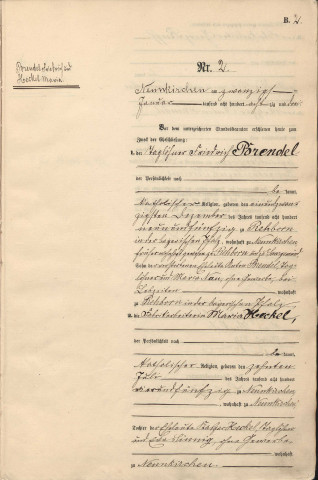 B. 2.
Brendel Friedrich und
Heckel Maria
Nr. 2.
Neunkirchen am zwanzigsten
Januar tausend acht hundert
Vor dem unterzeichneten Standesbeamten erschienen heute zum
Zweck der Eheschließung:
1. der Taglöhner Friedrich Brendel
der Persönlichkeit nach
be kannt,
katholischer Religion, geboren den einundzwan
zigsten Dezember des Jahres tausend acht hundert
neunundfünfzig zu Rehborn
in der bayerischen Pfalz, wohnhaft zu Neunkirchen
früher zu Rehborn
Sohn des verstorbenen Eheleute Brendel, Tag
löhner und Maria ohne Gewerbe, bei
Lebzeiten wohnhaft
zu Rehborn in der bayerischen Pfalz
2. die Fabrikarbeiterin Maria Heckel,
der Persönlichkeit nach
be kannt,
katholischer Religion, geboren den zehnten
Juli des Jahres tausend acht hundert
vierundfünfzig zu Neunkirchen
, wohnhaft zu Neunkirchen
Tochter der Eheleute Heckel, Taglöhner
und ohne Gewerbe
wohnhaft
zu Neunkirchen.